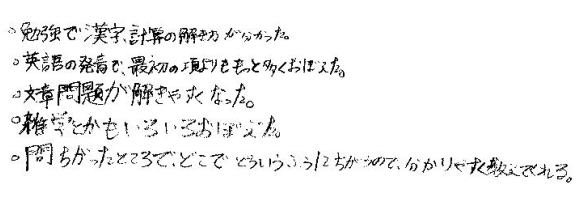 。勉強で漢字、計算の解き方が分かった。
。英語の発音で、最初の頃よりももっと多くおぼえた。
。文章問題が解きやすくなった。
。雑学とかもいろいろおぼえた。
。問ちがったところで、どこでどういうふうにちがうので、分かりやすく教えてくれる。